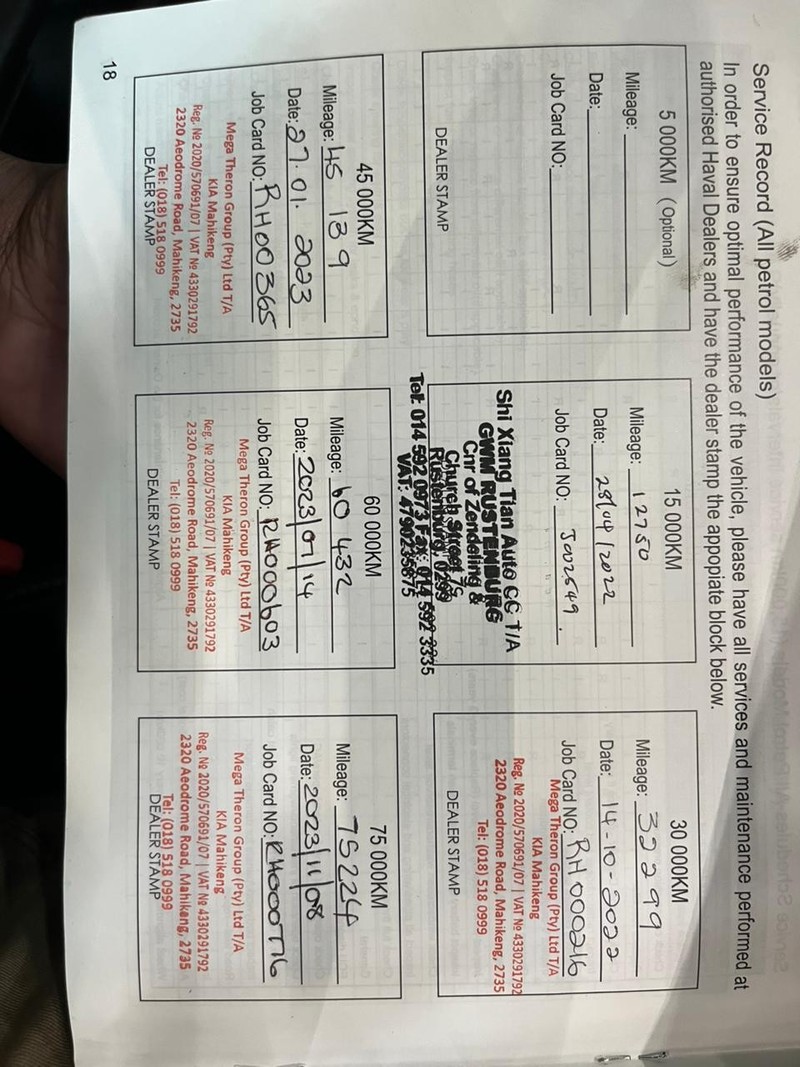 Service Record (All petrol models)
In order to ensure optimal performance of the vehicle, please have all services and maintenance performed at
authorised Haval Dealers and have the dealer stamp the appopiate block below.
5 000KM (Optional)
Mileage:
Date:
Job Card NO:
DEALER STAMP
15 000KM
Mileage: 12750
Date: 28/04/2022
Job Card NO: J002549.
Shi Xiang Tian Auto CC T/A
GWM RUSTENBURG
Cnr of Zendeling &
Church Street 7c
Rustenburg, 0299
Tel: 014 592 0973 Fax: 014 592 3335
VAT: 4790235875
30 000KM
Mileage: 32299
Date: 14-10-2022
Job Card NO: RH000216
Mega Theron Group (Pty) Ltd T/A
KIA Mahikeng
Reg. № 2020/570691/07 | VAT № 4330291792
2320 Aeodrome Road, Mahikeng, 2735
Tel: (018) 518 0999
DEALER STAMP
45 000KM
Mileage: 45 139
Date: 27.01.2023
Job Card NO: RH00365
Mega Theron Group (Pty) Ltd T/A
KIA Mahikeng
Reg. № 2020/570691/07 | VAT № 4330291792
2320 Aeodrome Road, Mahikeng, 2735
Tel: (018) 518 0999
DEALER STAMP
60 000KM
Mileage: 60 432
Date: 2023/07/14
Job Card NO: RH000603
Mega Theron Group (Pty) Ltd T/A
KIA Mahikeng
Reg. № 2020/570691/07 | VAT № 4330291792
2320 Aeodrome Road, Mahikeng, 2735
Tel: (018) 518 0999
DEALER STAMP
75 000KM
Mileage: 75224
Date: 2023/11/08
Job Card NO: RH000776
Mega Theron Group (Pty) Ltd T/A
KIA Mahikeng
Reg. № 2020/570691/07 | VAT № 4330291792
2320 Aeodrome Road, Mahikeng, 2735
Tel: (018) 518 0999
DEALER STAMP
18